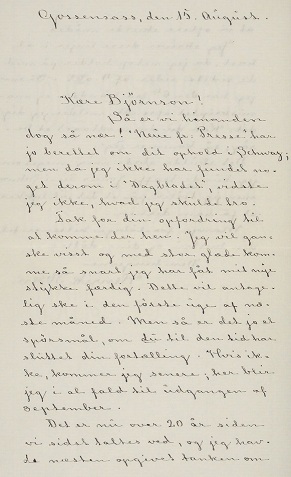 Gossensass, den 15. August.
Kære Bjørnson!
Så er vi hinanden
dog så nær! "Neue fr. Presse" har
jo berettet om dit ophold i Schwaz;
men da jeg ikke har fundet no-
get derom i "Dagbladet", vidste
jeg ikke, hvad jeg skulde tro.
Tak for din opfordring til
at komme der hen. Jeg vil gan-
ske visst og med stor glæde kom-
me så snart jeg har fåt mit nye
stykke færdig. Dette vil antage-
lig ske i den første uge af næ-
ste måned. Men så er det jo et
spørsmål, om du til den tid har
sluttet din fortælling. Hvis ik-
ke, kommer jeg senere; her blir
jeg i al fald til udgangen af
september.
Det er nu over 20 år siden
vi sidst taltes ved, og jeg hav-
de næsten opgivet tanken om